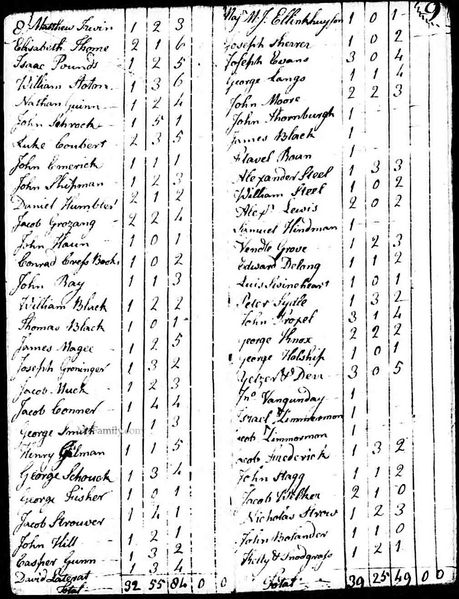 E. Matthew Irwin 1 2 3
Elisabeth Thome 2 1 6
Isaac Pounds 1 2 5
William Stotom 1 3 6
Nathan Guinn 1 2 4
John Schrock 1 5 1
Luke Coubert 2 3 5
John Emerick 1 1 1
John Shipman 1 2 3
Daniel Humbler 2 1 2
Jacob Grozang 2 2 4
John Haun 1 0 1
Conrad Cress Bock 1 0 2
John Ray 1 1 3
William Black 1 2 2
Thomas Black 1 0 1
James Magee 1 2 5
Joseph Groninger 1 3 2
Jacob Huck 1 2 3
Jacob Conner 1 4 4
George Smith 1 3
Henry Gilman 1 1 5
George Schouck 1 3 4
George Fisher 1 0 1
Jacob Strouver 1 4 1
John Hill 1 2 1
Casper Gunn 1 3 2
David 1 3 4
Total 32 55 84 0 0
9
Maj. W. J. 1 0 1
Joseph Sherer 1 0 2
Joseph Evans 3 0 4
George Lango 1 1 4
John Moore 2 2 3
John Thornburgh 1
James Black 1
Flavel Roan 1
Alexander Steel 1 3 3
William Steel 1 0 2
Alexr Lewis 2 0 2
Samuel Hindman 1
Vendle Grove 1 2 3
Edward Delong 1 1 2
Luis 1 0 1
Peter 1 3 2
John Tropel 3 1 4
George Knox 2 2 2
George Holship 1 0 1
& Den 3 0 5
Jno Vangunday 1
Israel Zimmerman 1
Jacob Zimmerman 1
Jacob Frederick 1 3 2
John Stagg 1 1 2
Jacob 2 1 0
Nicholas Strow 1 2 3
John Bolander 1 1 0
Kelly & Snodgrass 1 2 1
Total 39 25 49 0 0